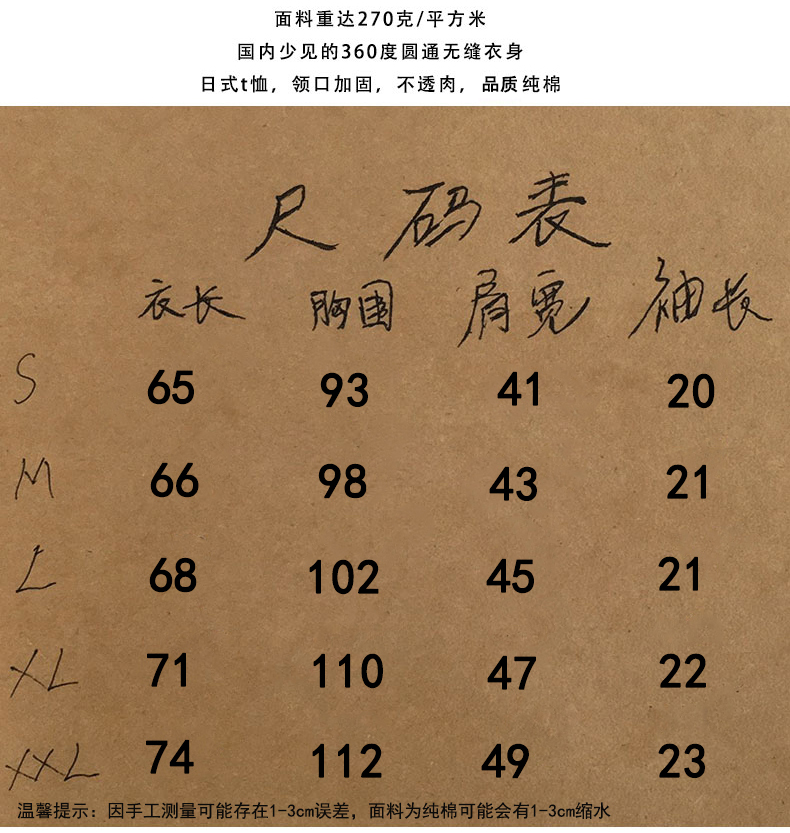 面料重达270克/平方米
国内少见的360度圆通无缝衣身
日式t恤，领口加固，不透肉，品质纯棉
尺码表
衣长 胸围 肩宽 袖长
S 65 93 41 20
M 66 98 43 21
L 68 102 45 21
XL 71 110 47 22
XXL 74 112 49 23
温馨提示：因手工测量可能存在1-3cm误差，面料为纯棉可能会有1-3cm缩水